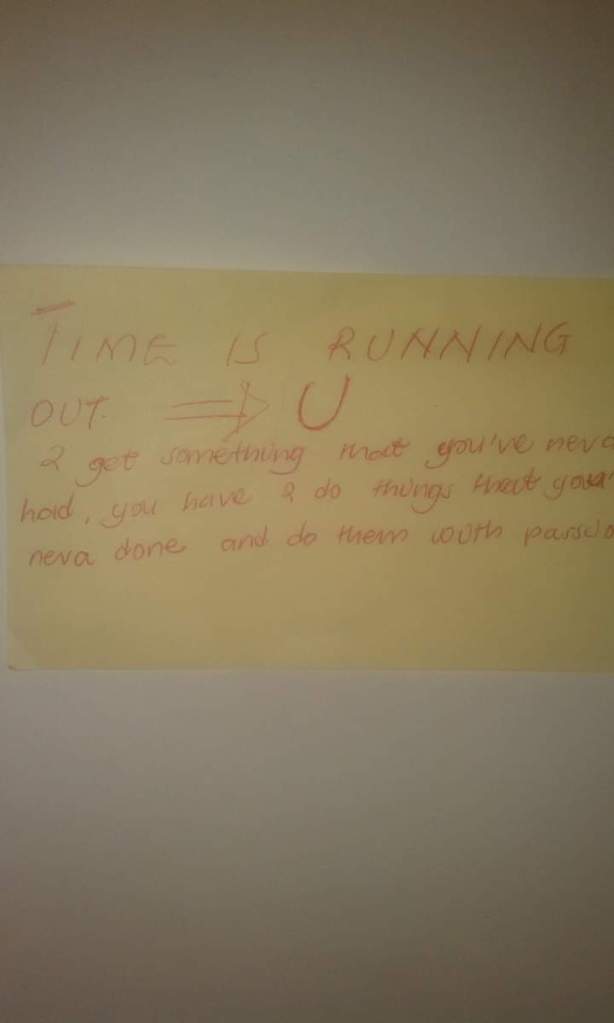 TIME IS RUNNING
OUT. ⇒ U
2 get something that you've neva
had, you have 2 do things that
neva done and do them with